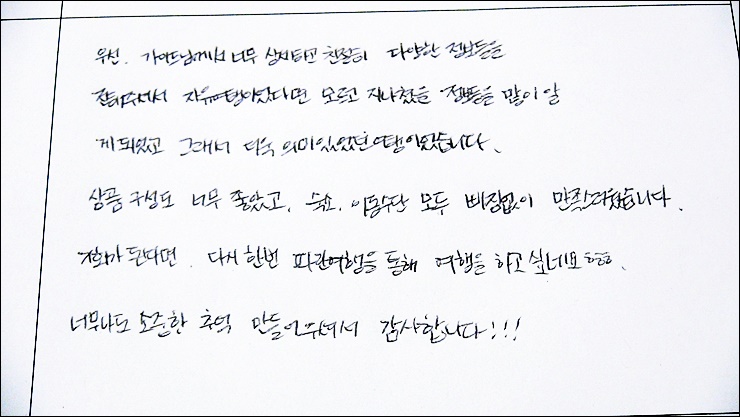 우선, 가이드님께서 너무 상세하고 친절히 다양한 정보들을
전해주셔서 자유여행이었다면 모르고 지나쳤을 정보들을 많이 알
게 되었고 그래서 더욱 의미있었던 여행이었습니다.
상품 구성도 너무 좋았고, 숙소, 이동수단 모두 빠짐없이 만족스러웠습니다.
기회가 된다면, 다시 한번 파란여행을 통해 여행을 하고 싶네요ㅎㅎㅎ.
너무나도 소중한 추억 만들어주셔서 감사합니다!!!